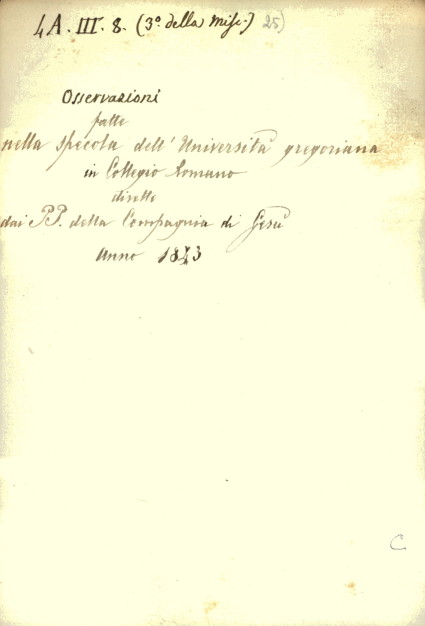 4A. III. 8. (3º della Misc.) 25)
Osservazioni
fatte
nella specola dell' Università gregoriana
in Collegio Romano
dirette
dai PP. della Compagnia di Gesù
Anno 1843
C